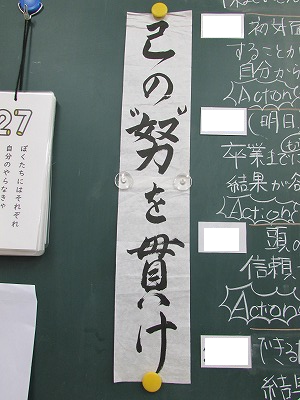 己の"努"を貫け
27
ぼくたちにはそれぞれ
自分のやらなきゃ
初対面
することか
自分から
Action
(明日
卒業まで
結果が
Action
頭の
信頼
Action
できる
結